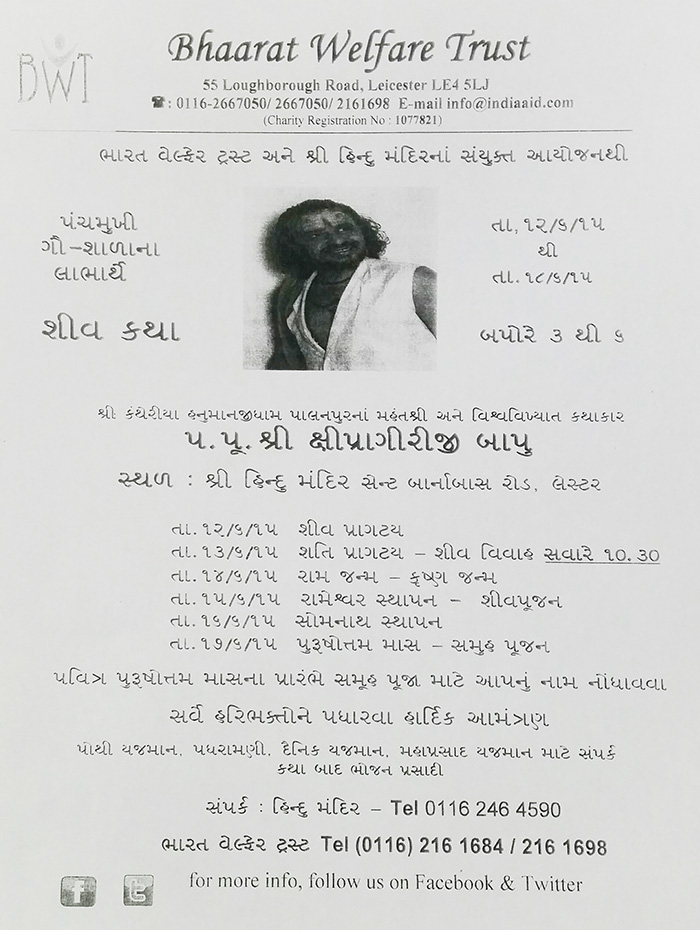 BWT
Bhaarat Welfare Trust
55 Loughborough Road, Leicester LE4 5LJ
☎: 0116-2667050/ 2667050/ 2161698 E-mail info@indiaaid.com
(Charity Registration No : 1077821)
ભારત વેલ્ફેર ટ્રસ્ટ અને શ્રી હિન્દુ મંદિરનાં સંયુક્ત આયોજનથી
પંચમુખી
ગૌ-શાળાના
લાભાર્થે
શીવ કથા
તા,૧૨/૬/૧૫
થી
તા.૧૮/૬/૧૫
બપોરે ૩ થી ૬
શ્રી કંથેરીયા હનુમાનજીધામ પાલનપુરનાં મહંતશ્રી અને વિશ્વવિખ્યાત કથાકાર
પ.પૂ.શ્રી ક્ષીપ્રાગીરીજી બાપુ
સ્થળ : શ્રી હિન્દુ મંદિર સેન્ટ બાર્નાબાસ રોડ, લેસ્ટર
તા.૧૨/૬/૧૫ શીવ પ્રાગટય
તા.૧૩/૬/૧૫ શતિ પ્રાગટય – શીવ વિવાહ સવારે ૧૦.૩૦
તા.૧૪/૬/૧૫ રામ જન્મ – કૃષ્ણ જન્મ
તા.૧૫/૬/૧૫ રામેશ્વર સ્થાપન – શીવપૂજન
તા.૧૬/૬/૧૫ સોમનાથ સ્થાપન
તા.૧૭/૬/૧૫ પુરૂષોત્તમ માસ – સમુહ પૂજન
પવિત્ર પુરૂષોત્તમ માસના પ્રારંભે સમૂહ પૂજા માટે આપનું નામ નોંધાવવા
સર્વે હરિભક્તોને પધારવા હાર્દિક આમંત્રણ
પોથી યજમાન, પધરામણી, દૈનિક યજમાન, મહાપ્રસાદ યજમાન માટે સંપર્ક
કથા બાદ ભોજન પ્રસાદી
સંપર્ક : હિન્દુ મંદિર – Tel 0116 246 4590
ભારત વેલ્ફેર ટ્રસ્ટ Tel (0116) 216 1684 / 216 1698
for more info, follow us on Facebook & Twitter